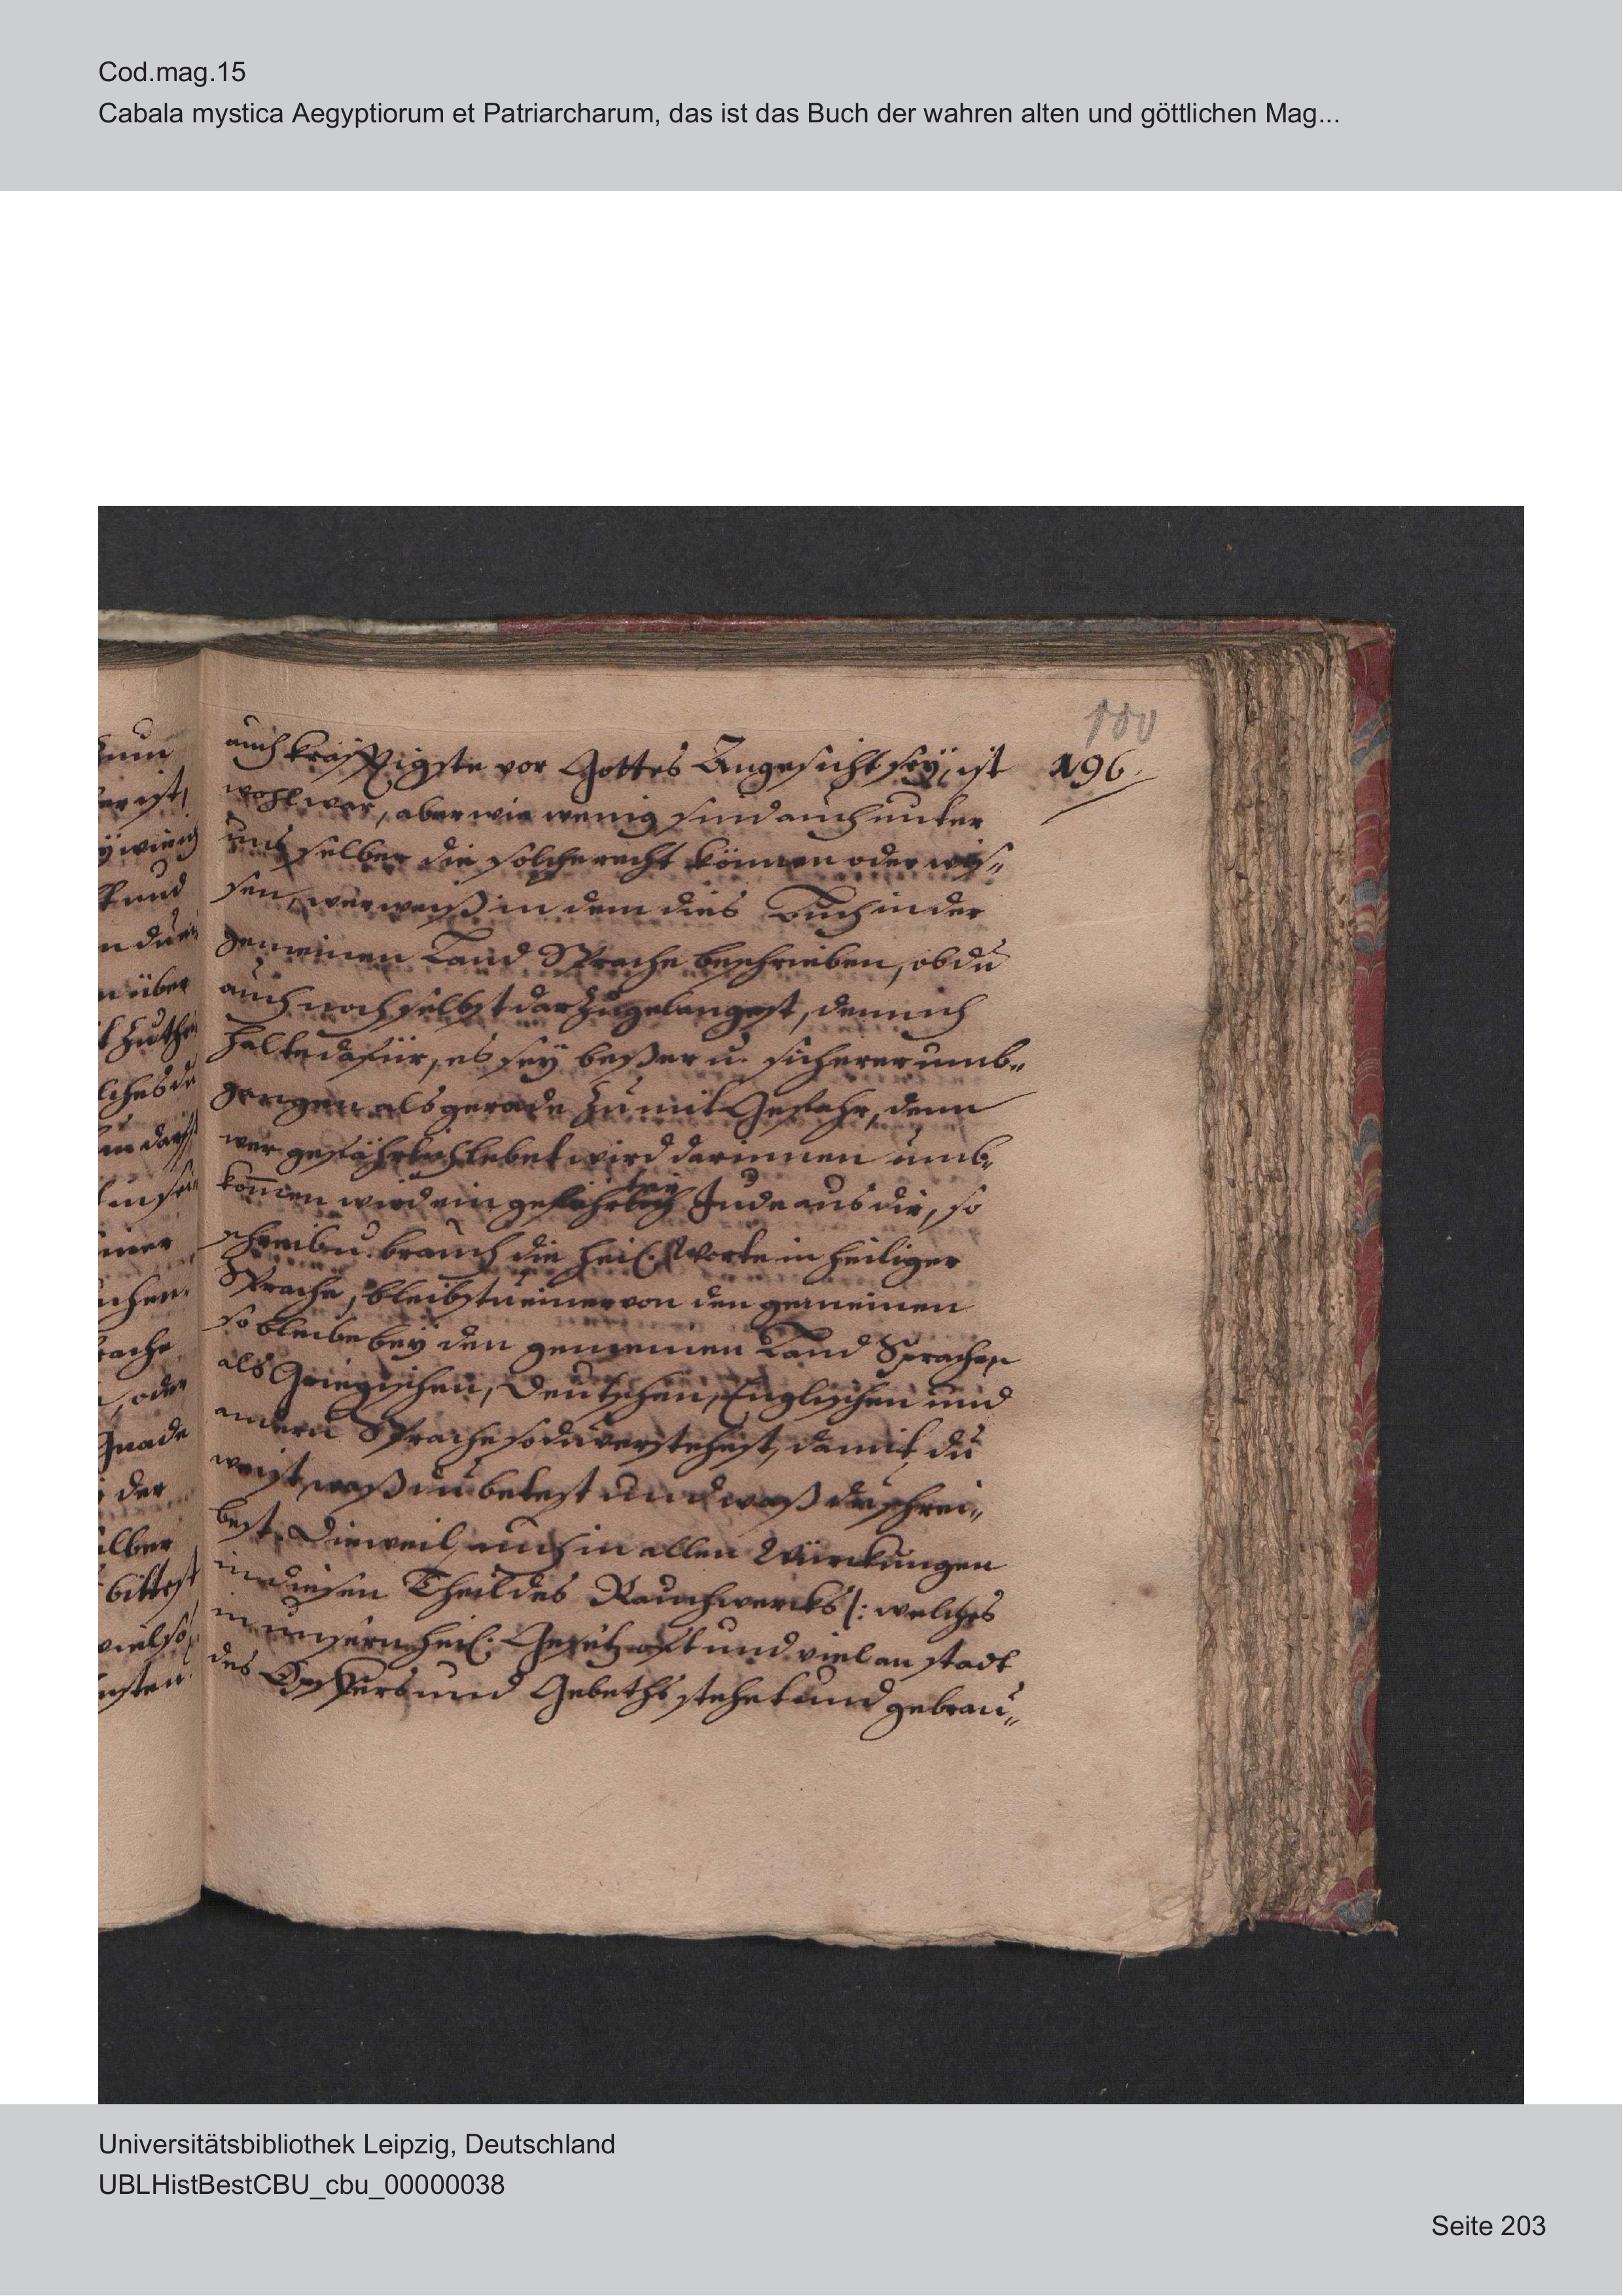 Cod.mag.15
Cabala mystica Aegyptiorum et Patriarcharum, das ist das Buch der wahren alten und göttlichen Mag...
100
196.
auch kräfftigste vor Gottes Angesicht seÿ, ist
wohl war, aber wie wenig sind auch unter
uns selber die solche recht können oder wis„
sen, wer weiß in dem dies Buch in der
gemeinen Land Sprache beschrieben, ob du
auch noch selbst darzu gelangest, denn ich
halte dafür, es seÿ beßer u. sicherer umb„
gangen als gerade zu mit Gefahr, denn
wer gefährlich lebet wird darinnen umb„
kom̄en wird ein Jude aus dir, so
schreib u. brauch die heil. Worte in heiliger
Sprache, bleibstu einer von den gemeinen
so bleibe beÿ den gemeinen Land Sprachen
als Griegischen, Deutschen, Englischen und
andern Sprache so du verstehest, damit du
weist, waß du betest und waß du schrei„
best. Dieweil auch in allen Würckungen
in diesen Theil des Rauchwercks /: welches
in unsern heil. Gesetz oft und viel an stadt
des Opffers und Gebeths stehet und gebrau„
zum
ist,
und
über
da
iner
achen.
rache
, oder
Gnade
der
bittest
viel so
Universitätsbibliothek Leipzig, Deutschland
UBLHistBestCBU_cbu_00000038
Seite 203